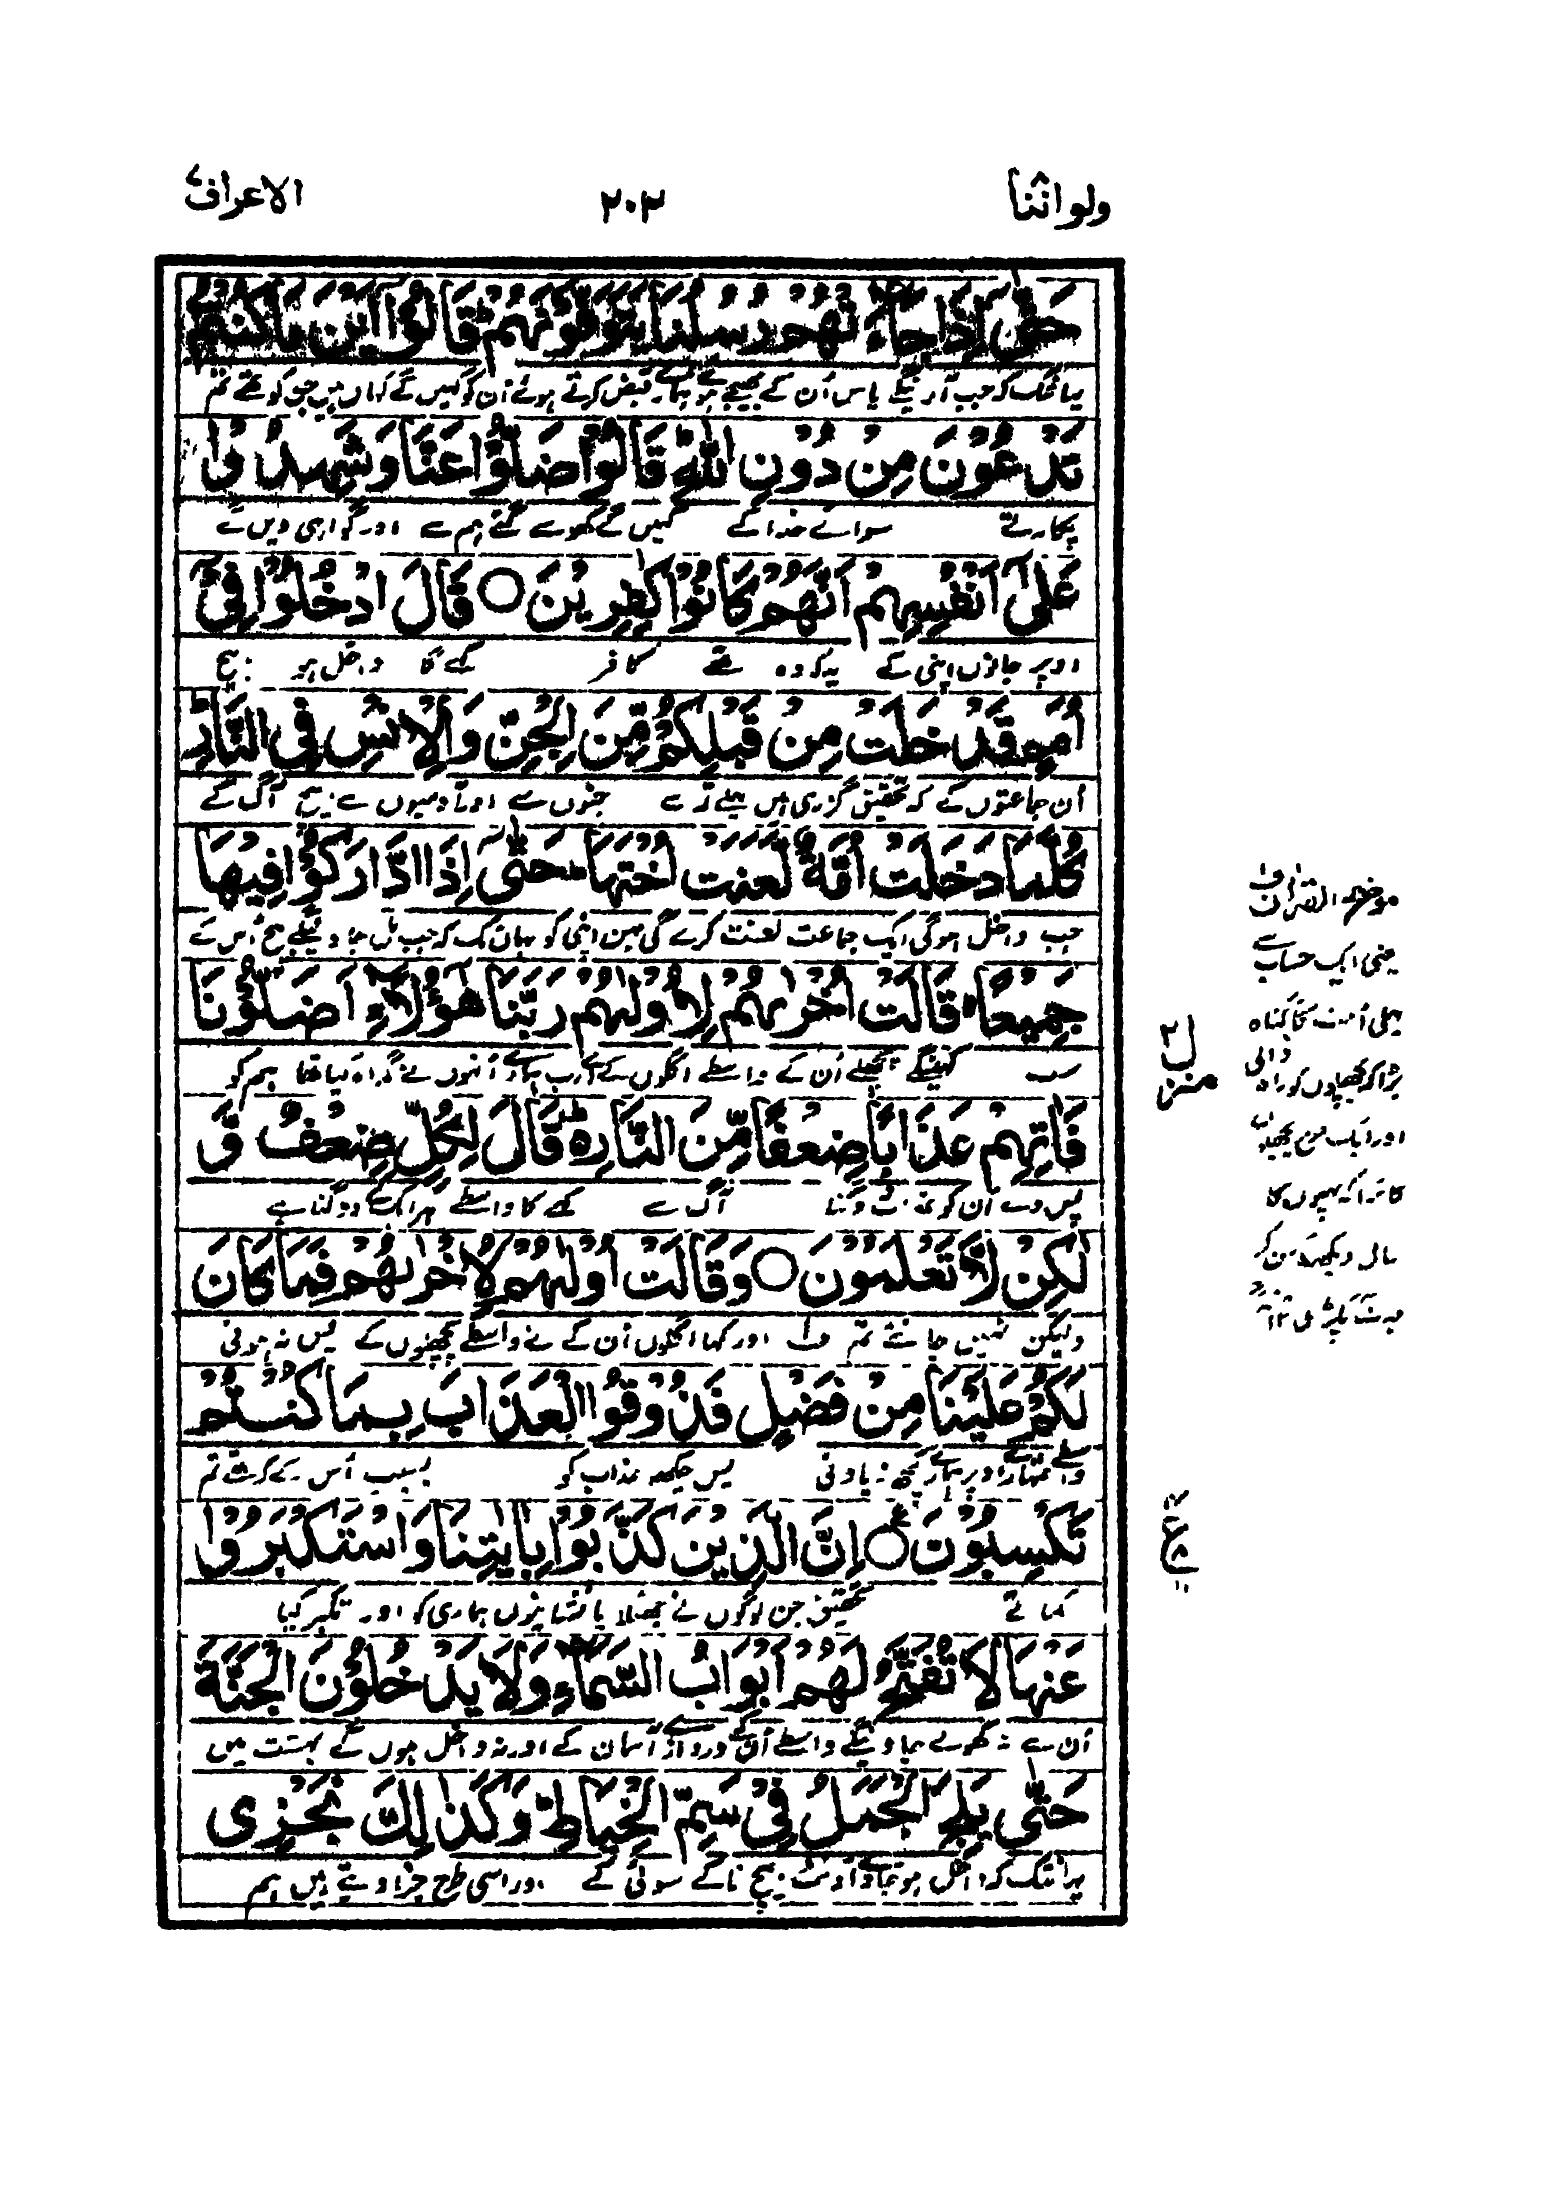 ولو اننا ٢٠٣ الاعراف ٧
حَتّٰٓى اِذَا جَآءَتْهُمْ رُسُلُنَا يَتَوَفَّوْنَهُمْ ۙ قَالُوْٓا اَيْنَ مَا كُنْتُمْ
تَدْعُوْنَ مِنْ دُوْنِ اللّٰهِ ؕ قَالُوْا ضَلُّوْا عَنَّا وَشَهِدُوْا
پکارتے سوائے خدا کے کہیں گے کھوئے گئے ہم سے اور گواہی دیں گے
عَلٰٓى اَنْفُسِهِمْ اَنَّهُمْ كَانُوْا كٰفِرِيْنَ ○ قَالَ ادْخُلُوْا فِيْٓ
اوپر جانوں اپنی کے یہ کہ وہ تھے کافر کہے گا داخل ہو بیچ
اُمَمٍ قَدْ خَلَتْ مِنْ قَبْلِكُمْ مِّنَ الْجِنِّ وَالْاِنْسِ فِى النَّارِ ؕ
اُن جماعتوں کے کہ تحقیق گزری ہیں پہلے تم سے جنوں سے اور آدمیوں سے بیچ آگ کے
كُلَّمَا دَخَلَتْ اُمَّةٌ لَّعَنَتْ اُخْتَهَا ؕ حَتّٰٓى اِذَا ادَّارَكُوْا فِيْهَا
جب داخل ہوگی ایک جماعت لعنت کرے گی بہن اپنی کو یہاں تک کہ جب مل جاوینگے بیچ اُس کے
جَمِيْعًا ۙ قَالَتْ اُخْرٰىهُمْ لِاُوْلٰىهُمْ رَبَّنَا هٰٓؤُلَآءِ اَضَلُّوْنَا
سب کہینگے پچھلے اُن کے واسطے اگلوں کے اے رب ہمارے اُنہوں نے گمراہ کیا تھا ہم کو
فَاٰتِهِمْ عَذَابًا ضِعْفًا مِّنَ النَّارِ ؕ۬ قَالَ لِكُلٍّ ضِعْفٌ وَّ
پس دے اُن کو عذاب دوگنا آگ سے کہے گا واسطے ہر ایک کے دوگنا ہے
لٰكِنْ لَّا تَعْلَمُوْنَ ○ وَقَالَتْ اُوْلٰىهُمْ لِاُخْرٰىهُمْ فَمَا كَانَ
ولیکن نہیں جانتے تم ف١ اور کہا اگلوں اُن کے نے واسطے پچھلوں کے پس نہ ہوئی
لَكُمْ عَلَيْنَا مِنْ فَضْلٍ فَذُوْقُوا الْعَذَابَ بِمَا كُنْتُمْ
واسطے تمہارے اوپر ہمارے کچھ زیادتی پس چکھو عذاب کو بسبب اُس کے کہ تھے تم
تَكْسِبُوْنَ ○ اِنَّ الَّذِيْنَ كَذَّبُوْا بِاٰيٰتِنَا وَاسْتَكْبَرُوْا
کماتے تحقیق جن لوگوں نے جھٹلایا نشانیوں ہماری کو اور تکبر کیا
عَنْهَا لَا تُفَتَّحُ لَهُمْ اَبْوَابُ السَّمَآءِ وَلَا يَدْخُلُوْنَ الْجَنَّةَ
اُن سے نہ کھولے جاوینگے واسطے اُن کے دروازے آسمان کے اور نہ داخل ہوں گے بہشت میں
حَتّٰى يَلِجَ الْجَمَلُ فِيْ سَمِّ الْخِيَاطِ ؕ وَكَذٰلِكَ نَجْزِى
یہاں تک کہ داخل ہو جاوے اونٹ بیچ ناکے سوئی کے اور اسی طرح جزا دیتے ہیں ہم
موضح القرآن
یعنی ایک حساب سے
پہلی اُمت کا گناہ
بڑا کہ پچھلوں کو راہ ڈالی
منزل ٢
ع